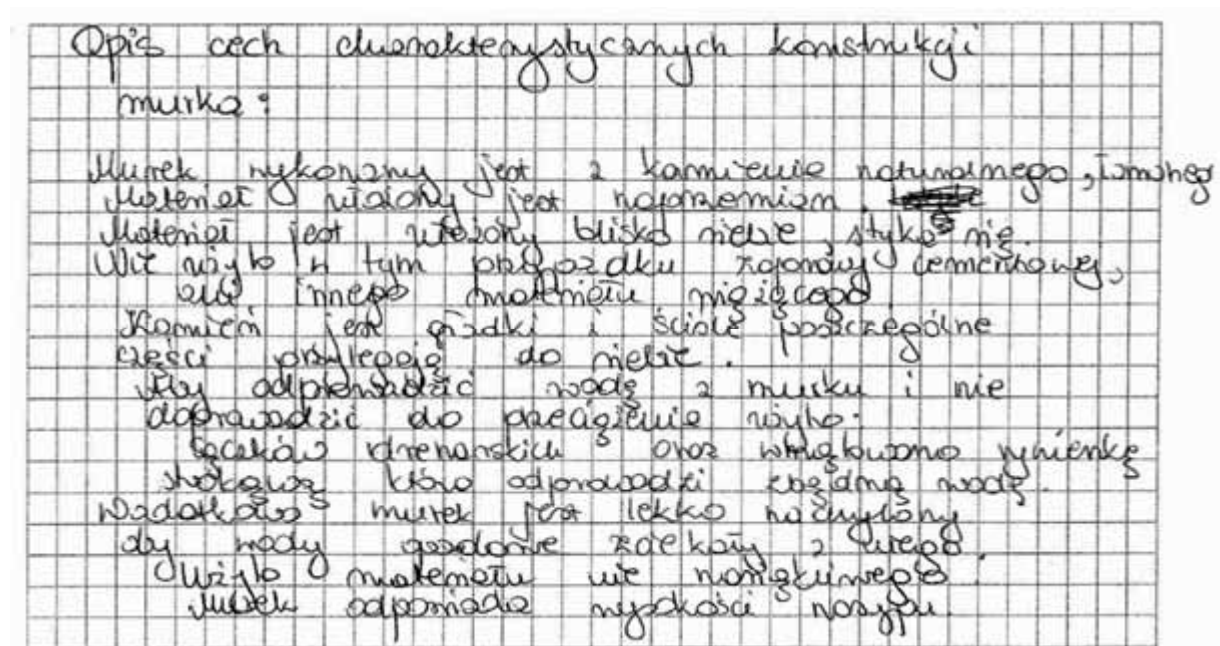 Opis cech charakterystycznych konstrukcji
murka:
Murek wykonany jest z kamienia naturalnego, łamanego
Materiał ułożony jest naprzemian.
Materiał jest ułożony blisko siebie, styka się.
Nie użyto w tym przypadku zaprawy cementowej,
ani innego materiału wiążącego
Kamień jest gładki i ściśle poszczególne
części przylegają do siebie.
Aby odprowadzić wodę z murku i nie
doprowadzić do przeciążenia użyto:
sączków drenarskich oraz wbudowano rynienkę
stokową która odprowadzi zbędną wodę.
Dodatkowo murek jest lekko nachylony
aby wody opadowe zciekały z niego.
Użyto materiału nie nasiąkliwego
Murek odpowiada wysokości nasypu.